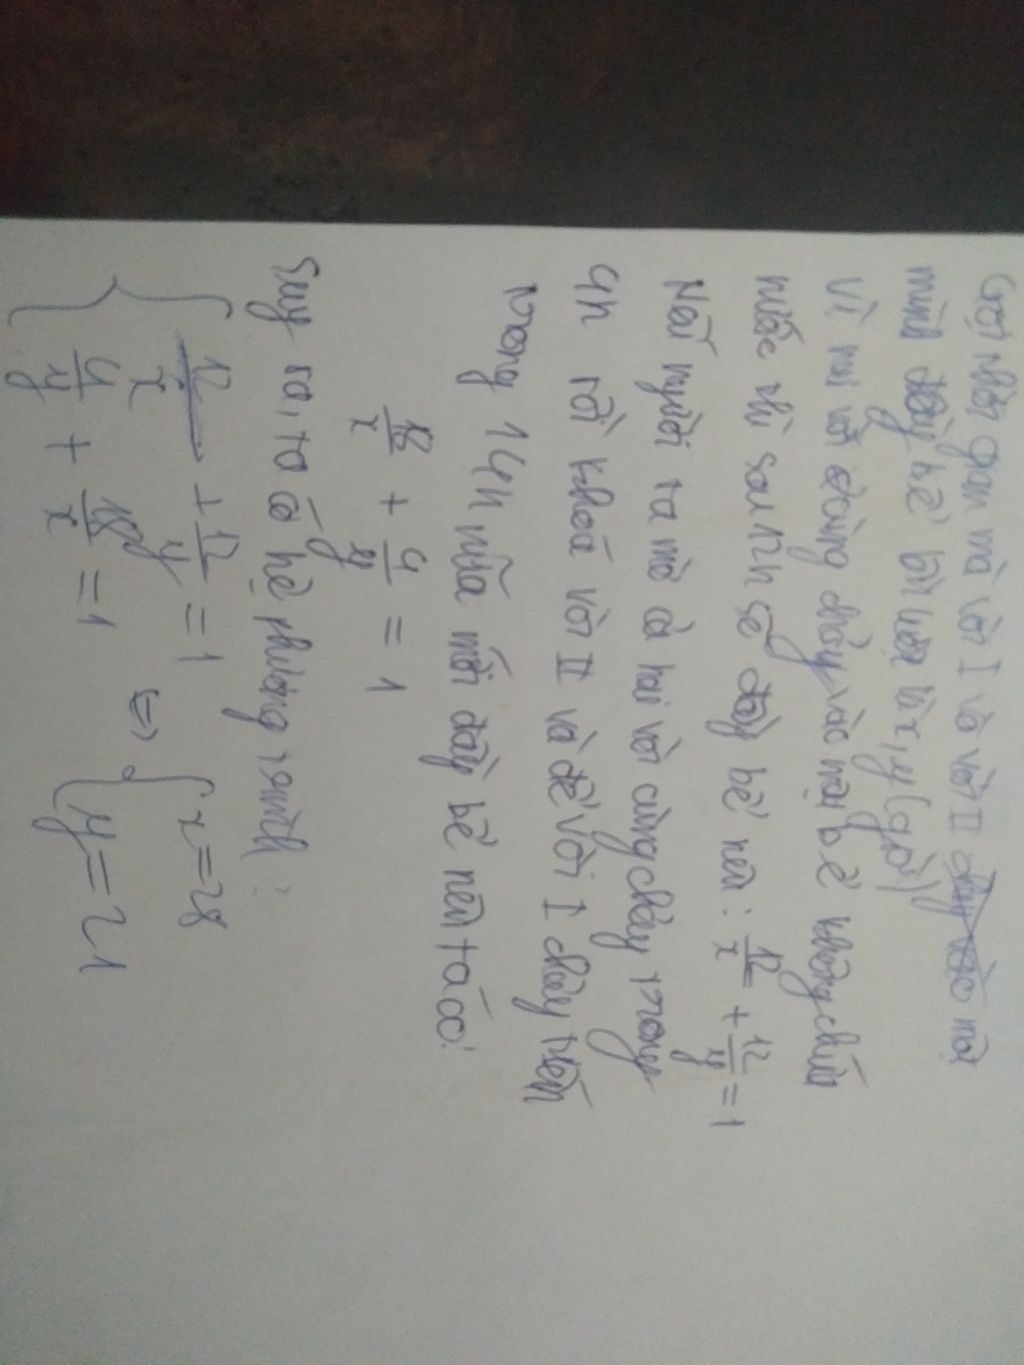 Gọi thời gian mà vòi I và vòi II chảy vào một
mình đầy bể lần lượt là x, y (giờ)
Vì hai vòi cùng chảy vào một bể không chứa
nước thì sau 12h sẽ đầy bể nên: 12/x + 12/y = 1
Nếu người ta mở cả hai vòi cùng chảy trong
4h rồi khoá vòi II và để vòi I chảy thêm
trong 14h nữa mới đầy bể nên ta có:
18/x + 4/y = 1
Suy ra, ta có hệ phương trình:
{ 12/x + 12/y = 1
4/y + 18/x = 1 ⇔ { x = 28
y = 21